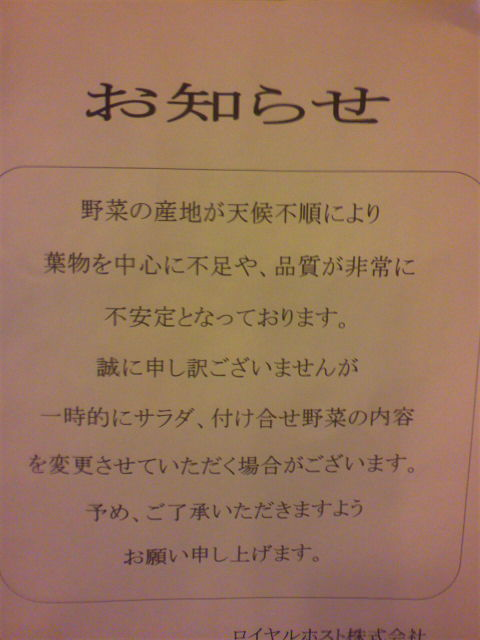 お知らせ
野菜の産地が天候不順により
葉物を中心に不足や、品質が非常に
不安定となっております。
誠に申し訳ございませんが
一時的にサラダ、付け合せ野菜の内容
を変更させていただく場合がございます。
予め、ご了承いただきますよう
お願い申し上げます。
ロイヤルホスト株式会社